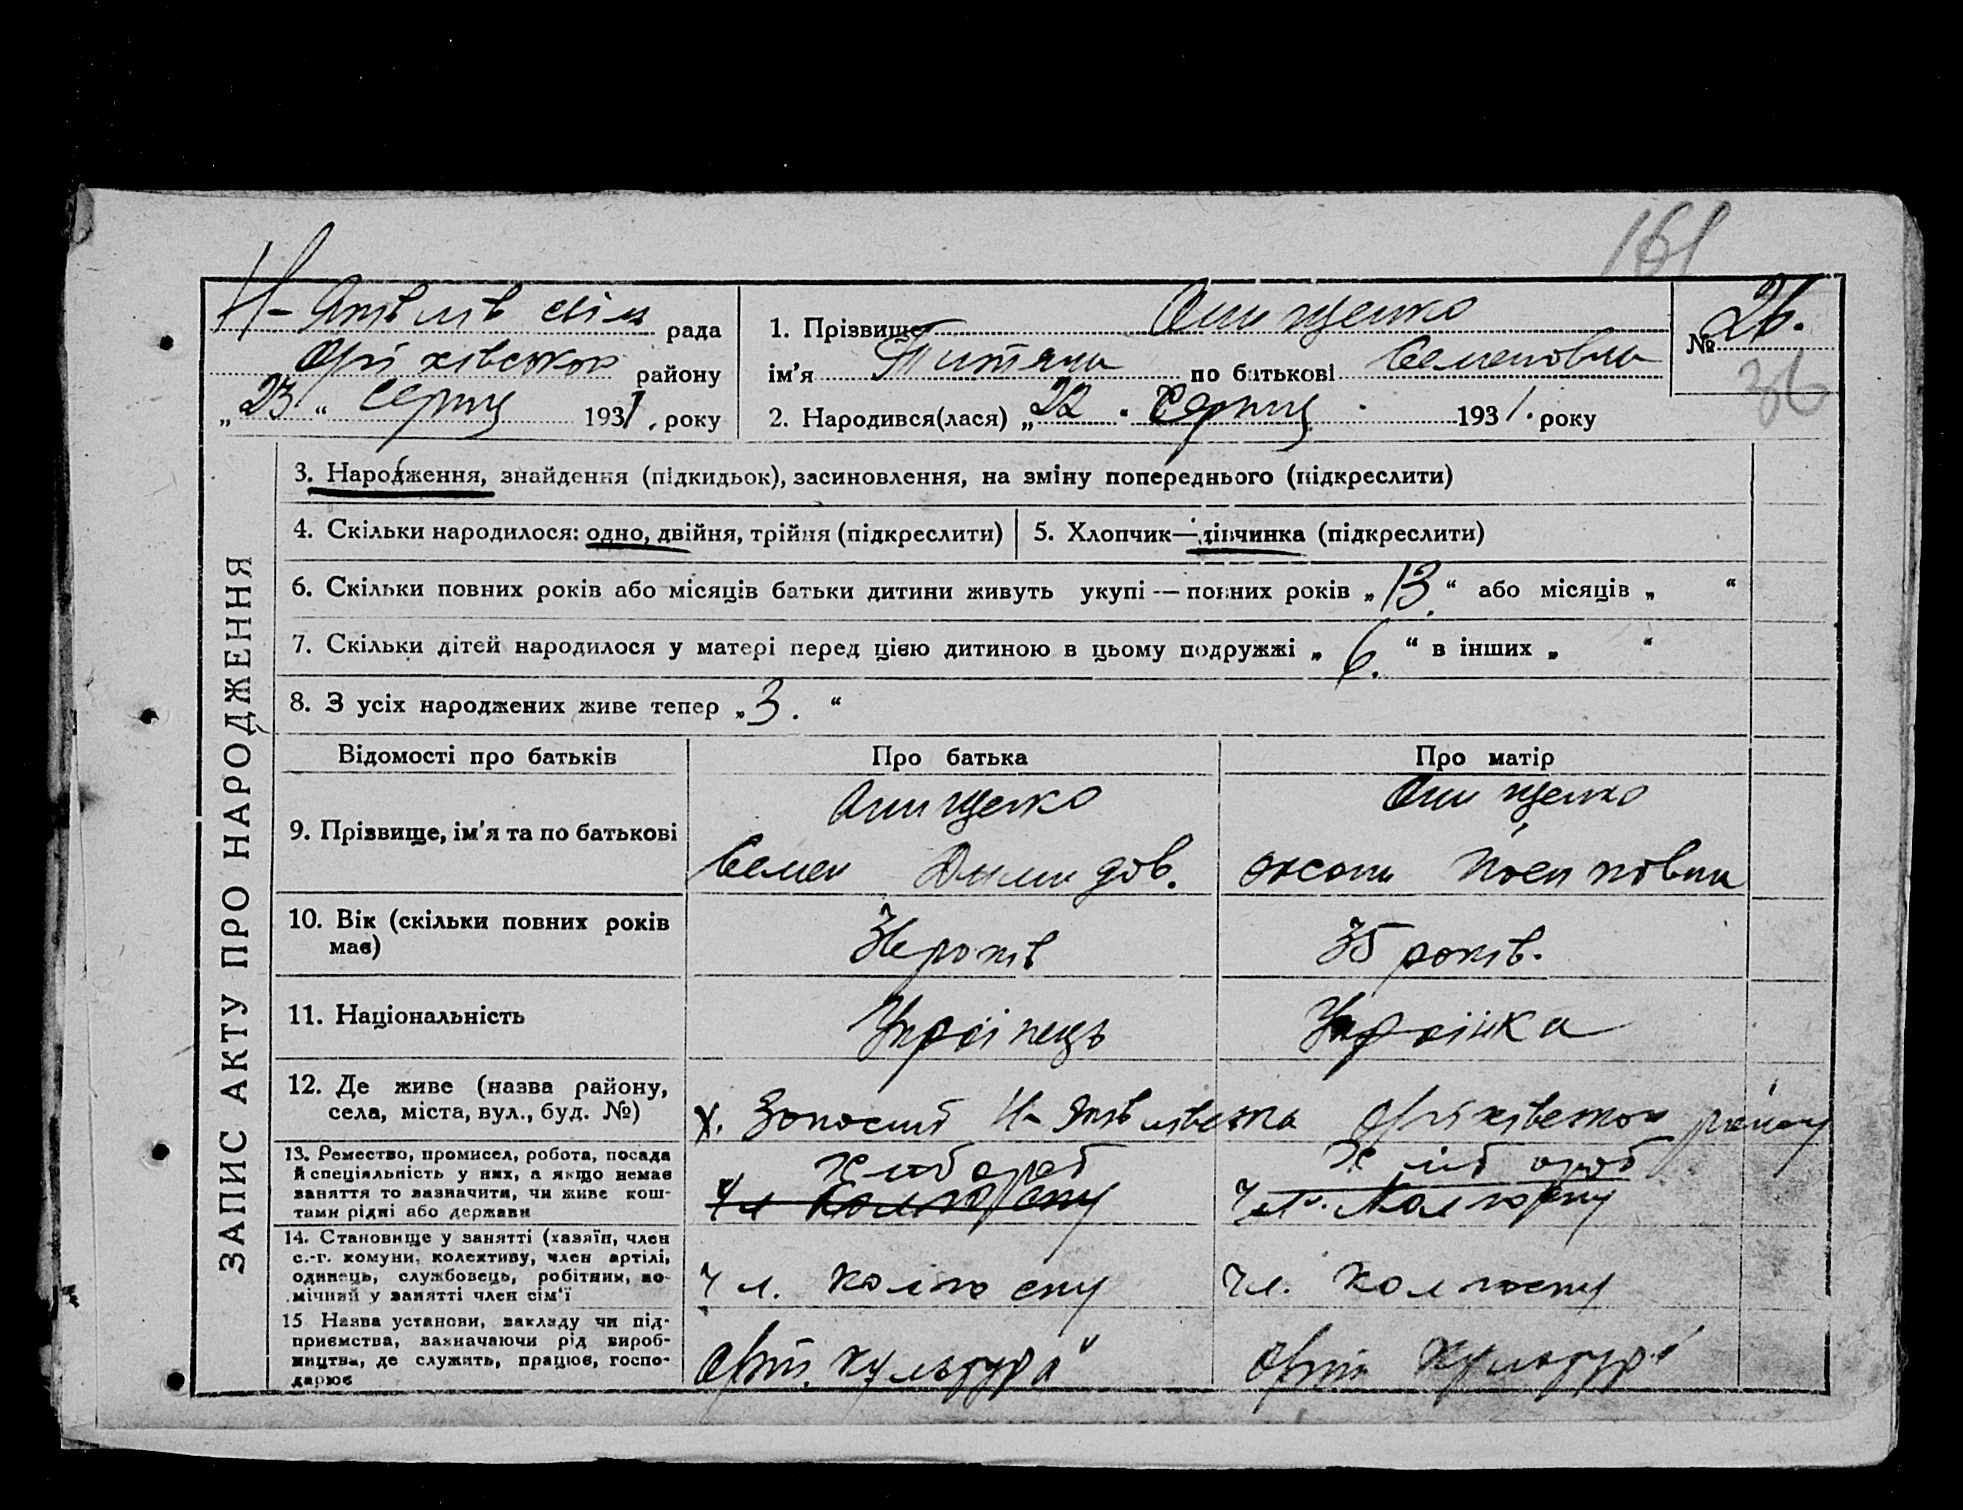 161
Н-Яків лів сіль рада
Оріхівського району
„23“ Серпня 1931. року
1. Прізвище Онищенко
ім'я Титяна по батькові Семеновна
2. Народився(лася) „22“ Серпня 1931. року
№ 26.
36
ЗАПИС АКТУ ПРО НАРОДЖЕННЯ
3. Народження, знайдення (підкидьок), засиновлення, на зміну попереднього (підкреслити)
4. Скільки народилося: одно, двійня, трійня (підкреслити)
5. Хлопчик—дівчинка (підкреслити)
6. Скільки повних років або місяців батьки дитини живуть укупі — повних років „13.“ або місяців „ “
7. Скільки дітей народилося у матері перед цією дитиною в цьому подружжі „6.“ в інших „ “
8. З усіх народжених живе тепер „3.“
Відомості про батьків Про батька Про матір
9. Прізвище, ім'я та по батькові
Онищенко
Семен Дими дов.
Онищенко
Оксана Йосиповна
10. Вік (скільки повних років
має)
36 років
35 років.
11. Національність
Українець
Українка
12. Де живе (назва району,
села, міста, вул., буд. №)
х. Н-Яківлівська Оріхівського району
13. Ремество, промисел, робота, посада
й спеціяльність у них, а якщо немає
заняття то зазначити, чи живе кош-
тами рідні або держави
Хлібороб
Чл Колгоспу
Хлібороб
Чл. Колгоспу
14. Становище у занятті (хазяїн, член
с.-г. комуни, колективу, член артілі,
одинець, службовець, робітник, по-
мічний у занятті член сім'ї
Чл. колгоспу
Чл. колгоспу
15. Назва установи, закладу чи під-
приємства, зазначаючи рід вироб-
ництва, де служить, працює, госпо-
дарює
Арт. культура"
Арт. культура"